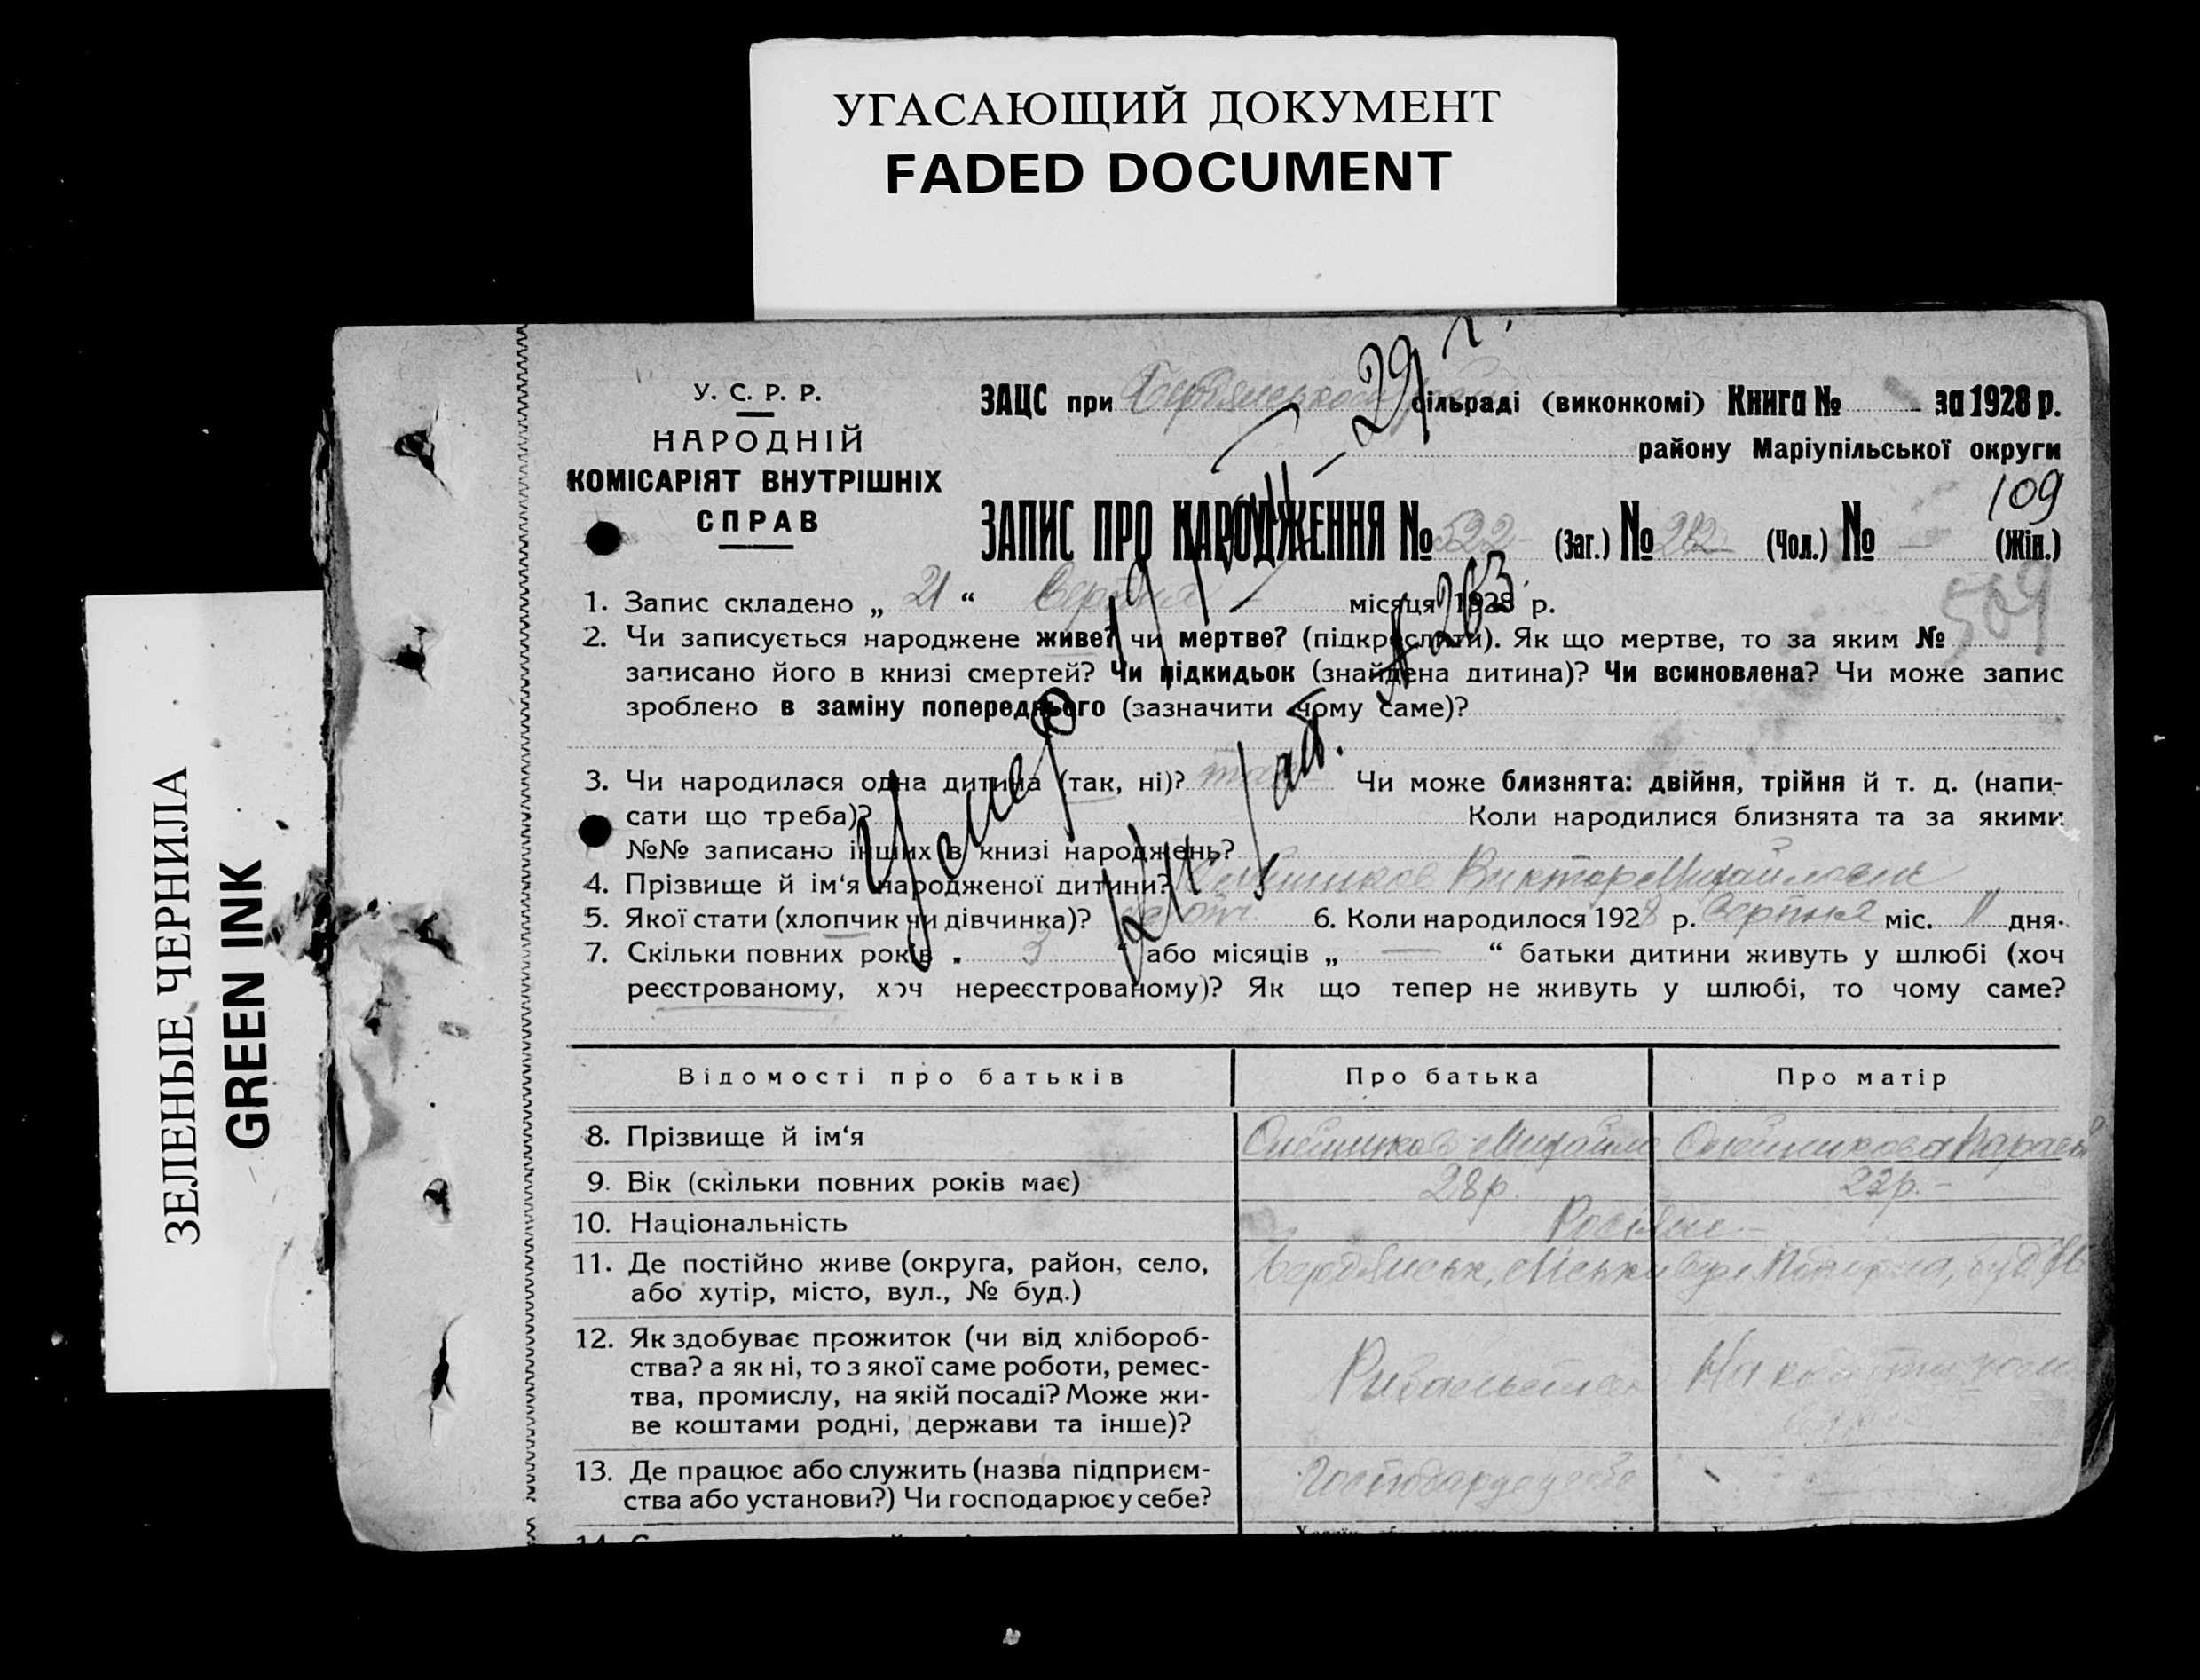 УГАСАЮЩИЙ ДОКУМЕНТ
FADED DOCUMENT
ЗЕЛЕНЫЕ ЧЕРНИЛА
GREEN INK
У. С. Р. Р.
НАРОДНІЙ
КОМІСАРІЯТ ВНУТРІШНІХ
СПРАВ
ЗАЦС при сільраді (виконкомі) Книга № за 1928 р.
району Маріупільської округи
109
ЗАПИС ПРО НАРОДЖЕННЯ № 522 (Заг.) № 262 (Чол.) № — (Жін.)
509
29 г.
№ 263.
Умер
1. Запис складено „ 21 “ Серпня місяця 1928 р.
2. Чи записується народжене живе? чи мертве? (підкреслити). Як що мертве, то за яким №
записано його в книзі смертей? Чи підкидьок (знайдена дитина)? Чи всиновлена? Чи може запис
зроблено в заміну попереднього (зазначити чому саме)?
3. Чи народилася одна дитина (так, ні)? так Чи може близнята: двійня, трійня й т. д. (напи-
сати що треба)? Коли народилися близнята та за якими
№№ записано інших в книзі народжень?
4. Прізвище й ім‘я народженої дитини? Виктор Михайлович
5. Якої стати (хлопчик чи дівчинка)? 6. Коли народилося 1928 р. Серпня міс. 11 дня.
7. Скільки повних років „ 3 “ або місяців „ — “ батьки дитини живуть у шлюбі (хоч
реєстрованому, хоч нереєстрованому)? Як що тепер не живуть у шлюбі, то чому саме?
Відомості про батьків Про батька Про матір
8. Прізвище й ім‘я Михайло
9. Вік (скільки повних років має) 28 р. 22 р. -
10. Національність Росіяне
11. Де постійно живе (округа, район, село,
або хутір, місто, вул., № буд.) Бердянськ,
12. Як здобуває прожиток (чи від хлібороб-
ства? а як ні, то з якої саме роботи, ремес-
тва, промислу, на якій посаді? Може жи-
ве коштами родні, держави та інше)?
13. Де працює або служить (назва підприєм-
ства або установи?) Чи господарює у себе?